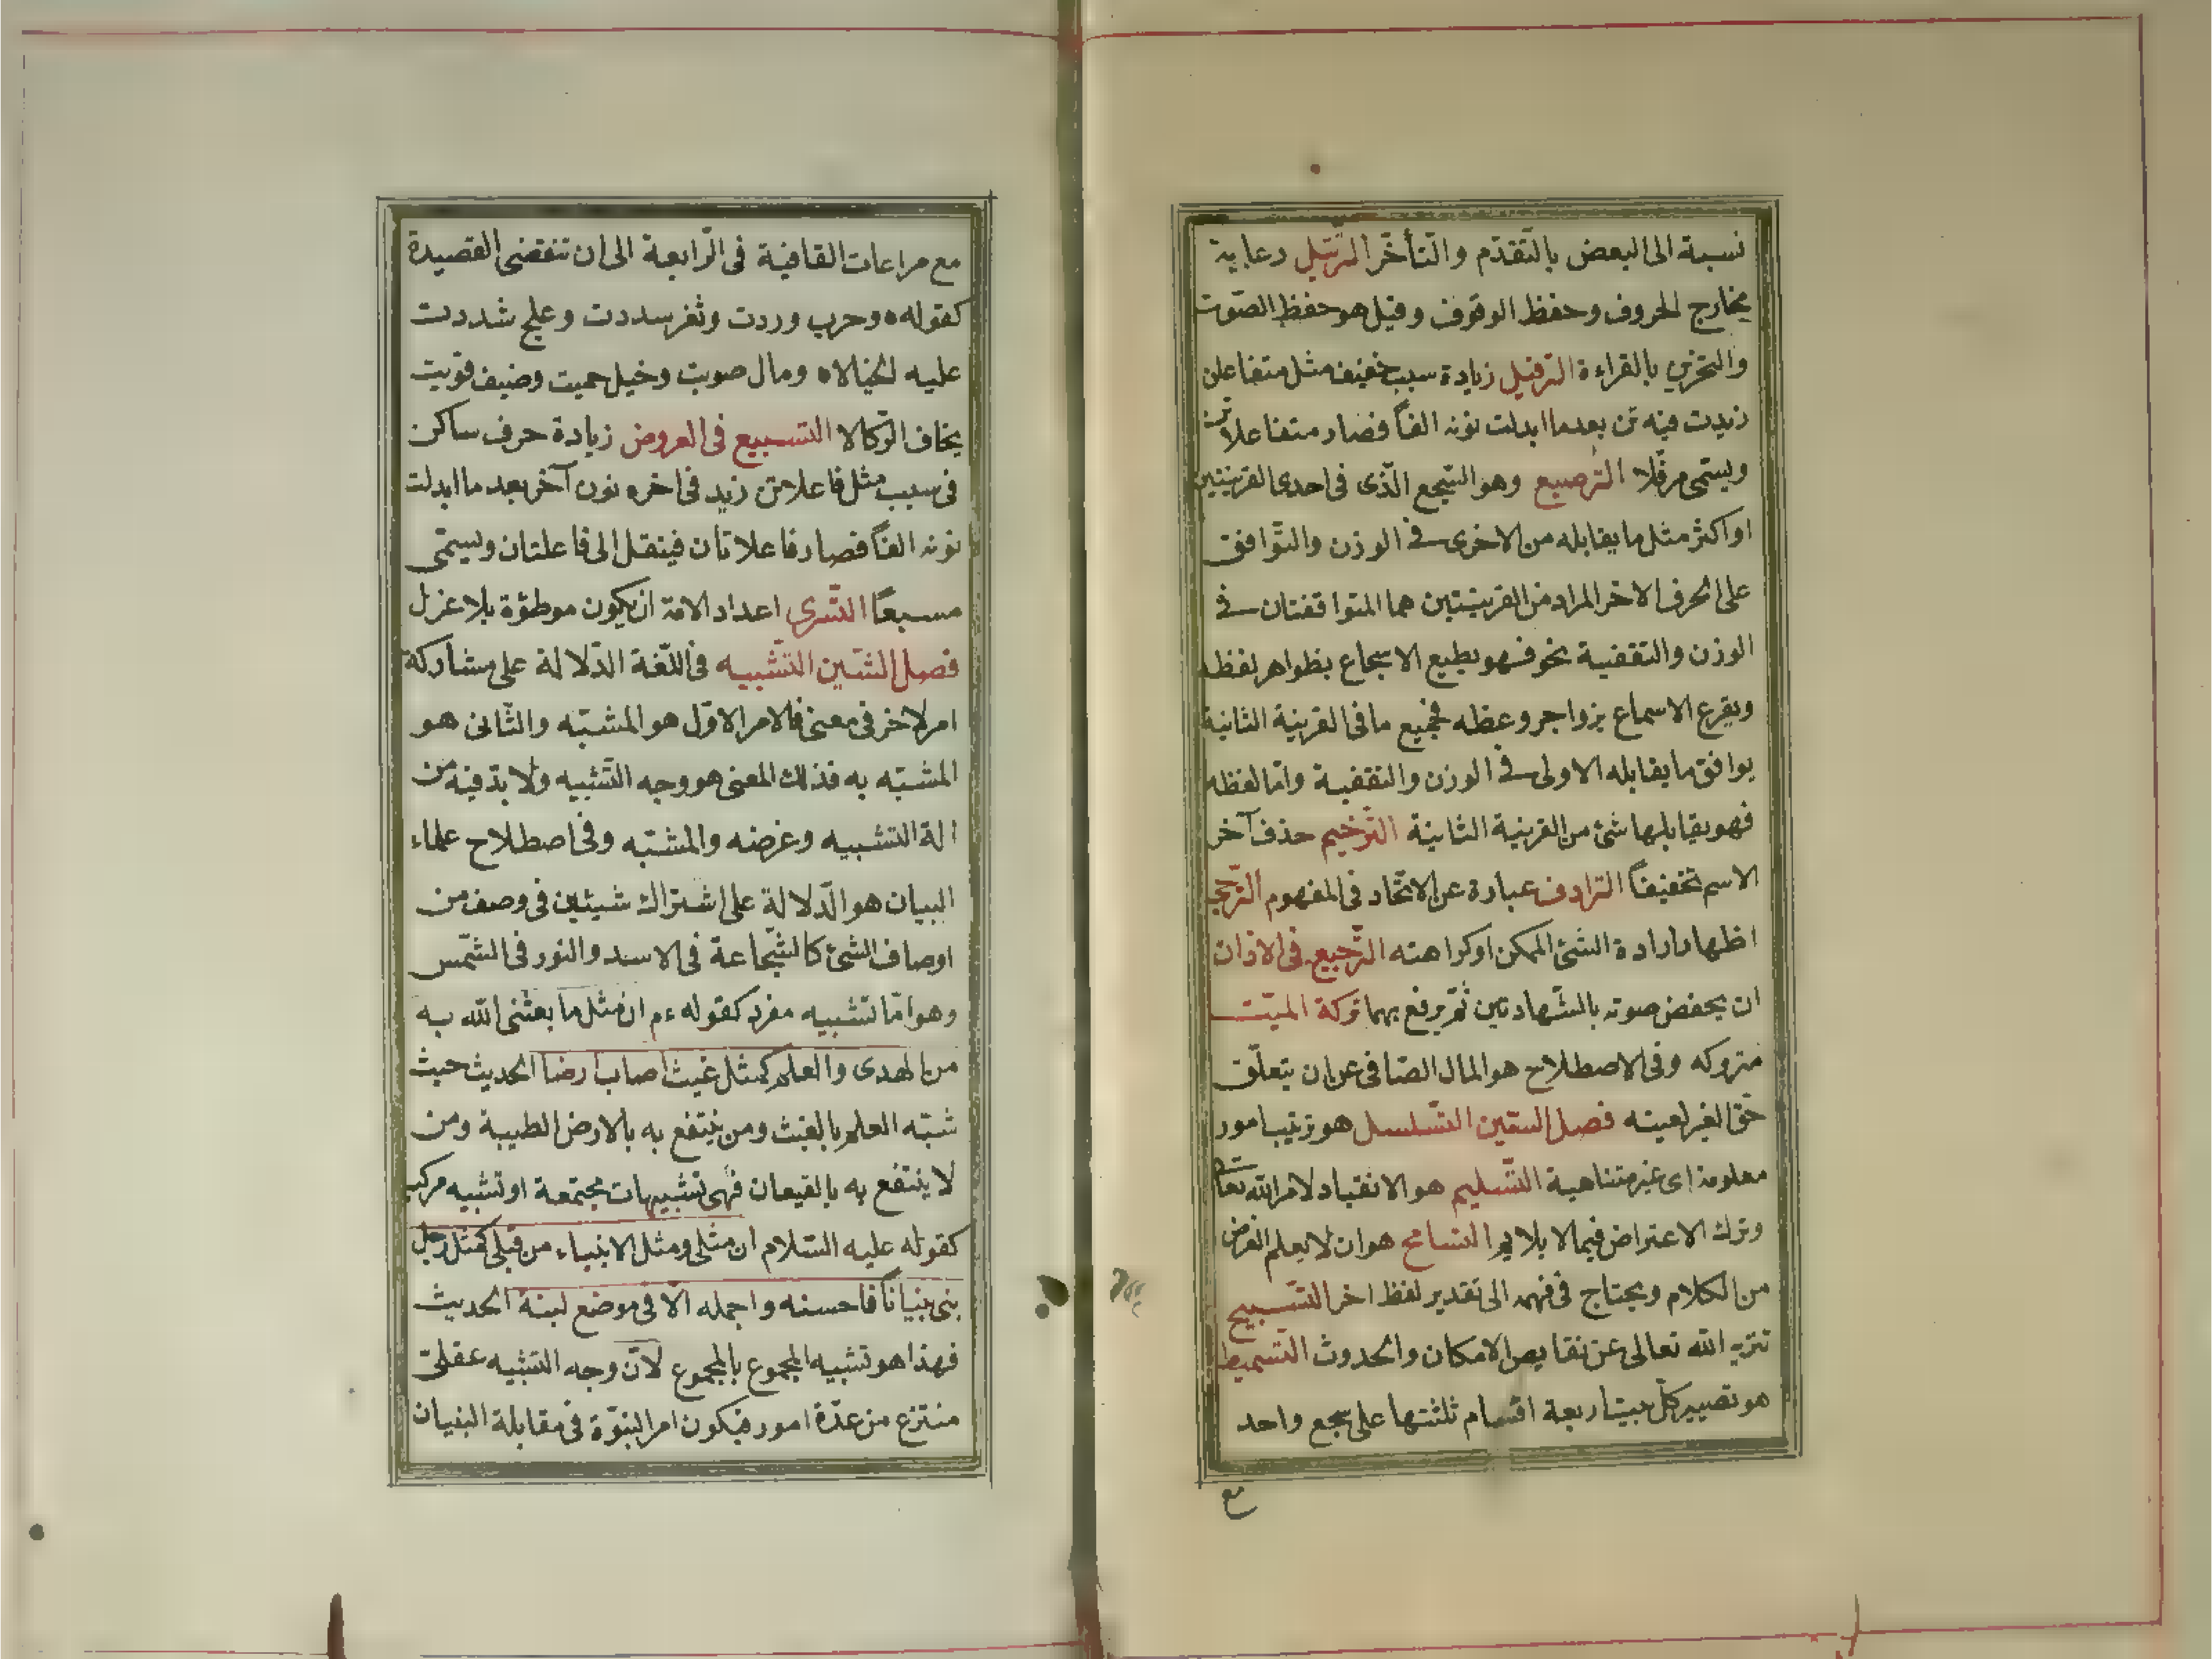 نسبة الى البعض بالتّقدّم والتّأخّر الترتيل رعاية
مخارج الحروف وحفظ الوقوف وقيل هو حفظ الصّوت
والتحزين بالقراءة الترفيل زيادة سبب خفيف مثل متفاعلن
زيدت فيه تن بعد ما ابدلت نونه الفاً فصار متفاعلاتن
ويسمّى مرفّلا الترصيع وهو السّجع الّذى فى احدى القرينتين
او اكثر مثل ما يقابله من الاخرى فى الوزن والتّوافق
على الحرف الاخر المراد من القرينتين هما المتوافقتان فى
الوزن والتقفية نحو فهو يطبع الاسجاع بظواهر لفظه
ويقرع الاسماع بزواجر وعظه فجميع ما فى القرينة الثانية
يوافق ما يقابله الاولى فى الوزن والتقفية وامّا لفظه
فهو يقابلها شئ من القرينة الثانية التّرخيم حذف آخر
الاسم تخفيفاً الترادف عبارة عن الاتّحاد فى المفهوم التّرجى
اظهار ارادة الشئ الممكن او كراهته التّرجيع فى الاذان
ان يخفض صوته بالشّهادتين ثمّ يرفع بهما تركة الميّت
متروكه وفى الاصطلاح هو المال الصّافى عن ان يتعلّق
حقّ الغير لعينه فصل السّين التّسلسل هو ترتيب امور
معلومة اى غير متناهية التّسليم هو الانقياد لامر الله تعالى
وترك الاعتراض فيما لا يلايم التسامح هو ان لا يعلم الغرض
من الكلام ويحتاج فى فهمه الى تقدير لفظ اخر التّسبيح
تنزيه الله تعالى عن نقايص الامكان والحدوث التّسميط
هو تصيير كلّ بيت اربعة اقسام ثلثتها على سجع واحد
مع
مع مراعات القافية فى الرّابعة الى ان تنقضى القصيدة
كقوله ه وحرب وردت وثغر سددت وعلج شددت
عليه الحبالاه ومال حويت وخيل حميت وضيف قويت
يخاف الوّكالا التسبيع فى العروض زيادة حرف ساكن
فى سبب مثل فاعلاتن زيد فى اخره نون آخر بعد ما ابدلت
نونه الفاً فصار فاعلاتان فينقل الى فاعلتان ويسمّى
مسبعاً التّسرى اعداد الامة ان يكون موطؤة بلا عزل
فصل الشّين التّشبيه فى اللّغة الدّلالة على مشاركة
امر لاخر فى معنى فالامر الاوّل هو المشبّه والثّانى هو
المشبّه به فذلك المعنى هو وجه التّشبيه ولا بدّ فيه من
الة التشبيه وغرضه والمشبّه وفى اصطلاح علماء
البيان هو الدّلالة على اشتراك شيئين فى وصف من
اوصاف الشئ كالشّجاعة فى الاسد والنور فى الشّمس
وهو امّا تشبيه مفرد كقوله عم ان مثل ما بعثنى الله به
من الهدى والعلم كمثل غيث اصاب ارضا الحديث حيث
شبّه العلم بالغيث ومن ينتفع به بالارض الطيبة ومن
لا ينتفع به بالقيعان فهى تشبيهات مجتمعة او تشبيه مركب
كقوله عليه السّلام ان مثلى ومثل الانبياء من قبلى كمثل رجل
بنى بنياناً فاحسنه واجمله الّا فى موضع لبنة الحديث
فهذا هو تشبيه المجموع بالمجموع لانّ وجه التشبيه عقلىّ
منتزع من عدّة امور فيكون امر النبوّة فى مقابلة البنيان